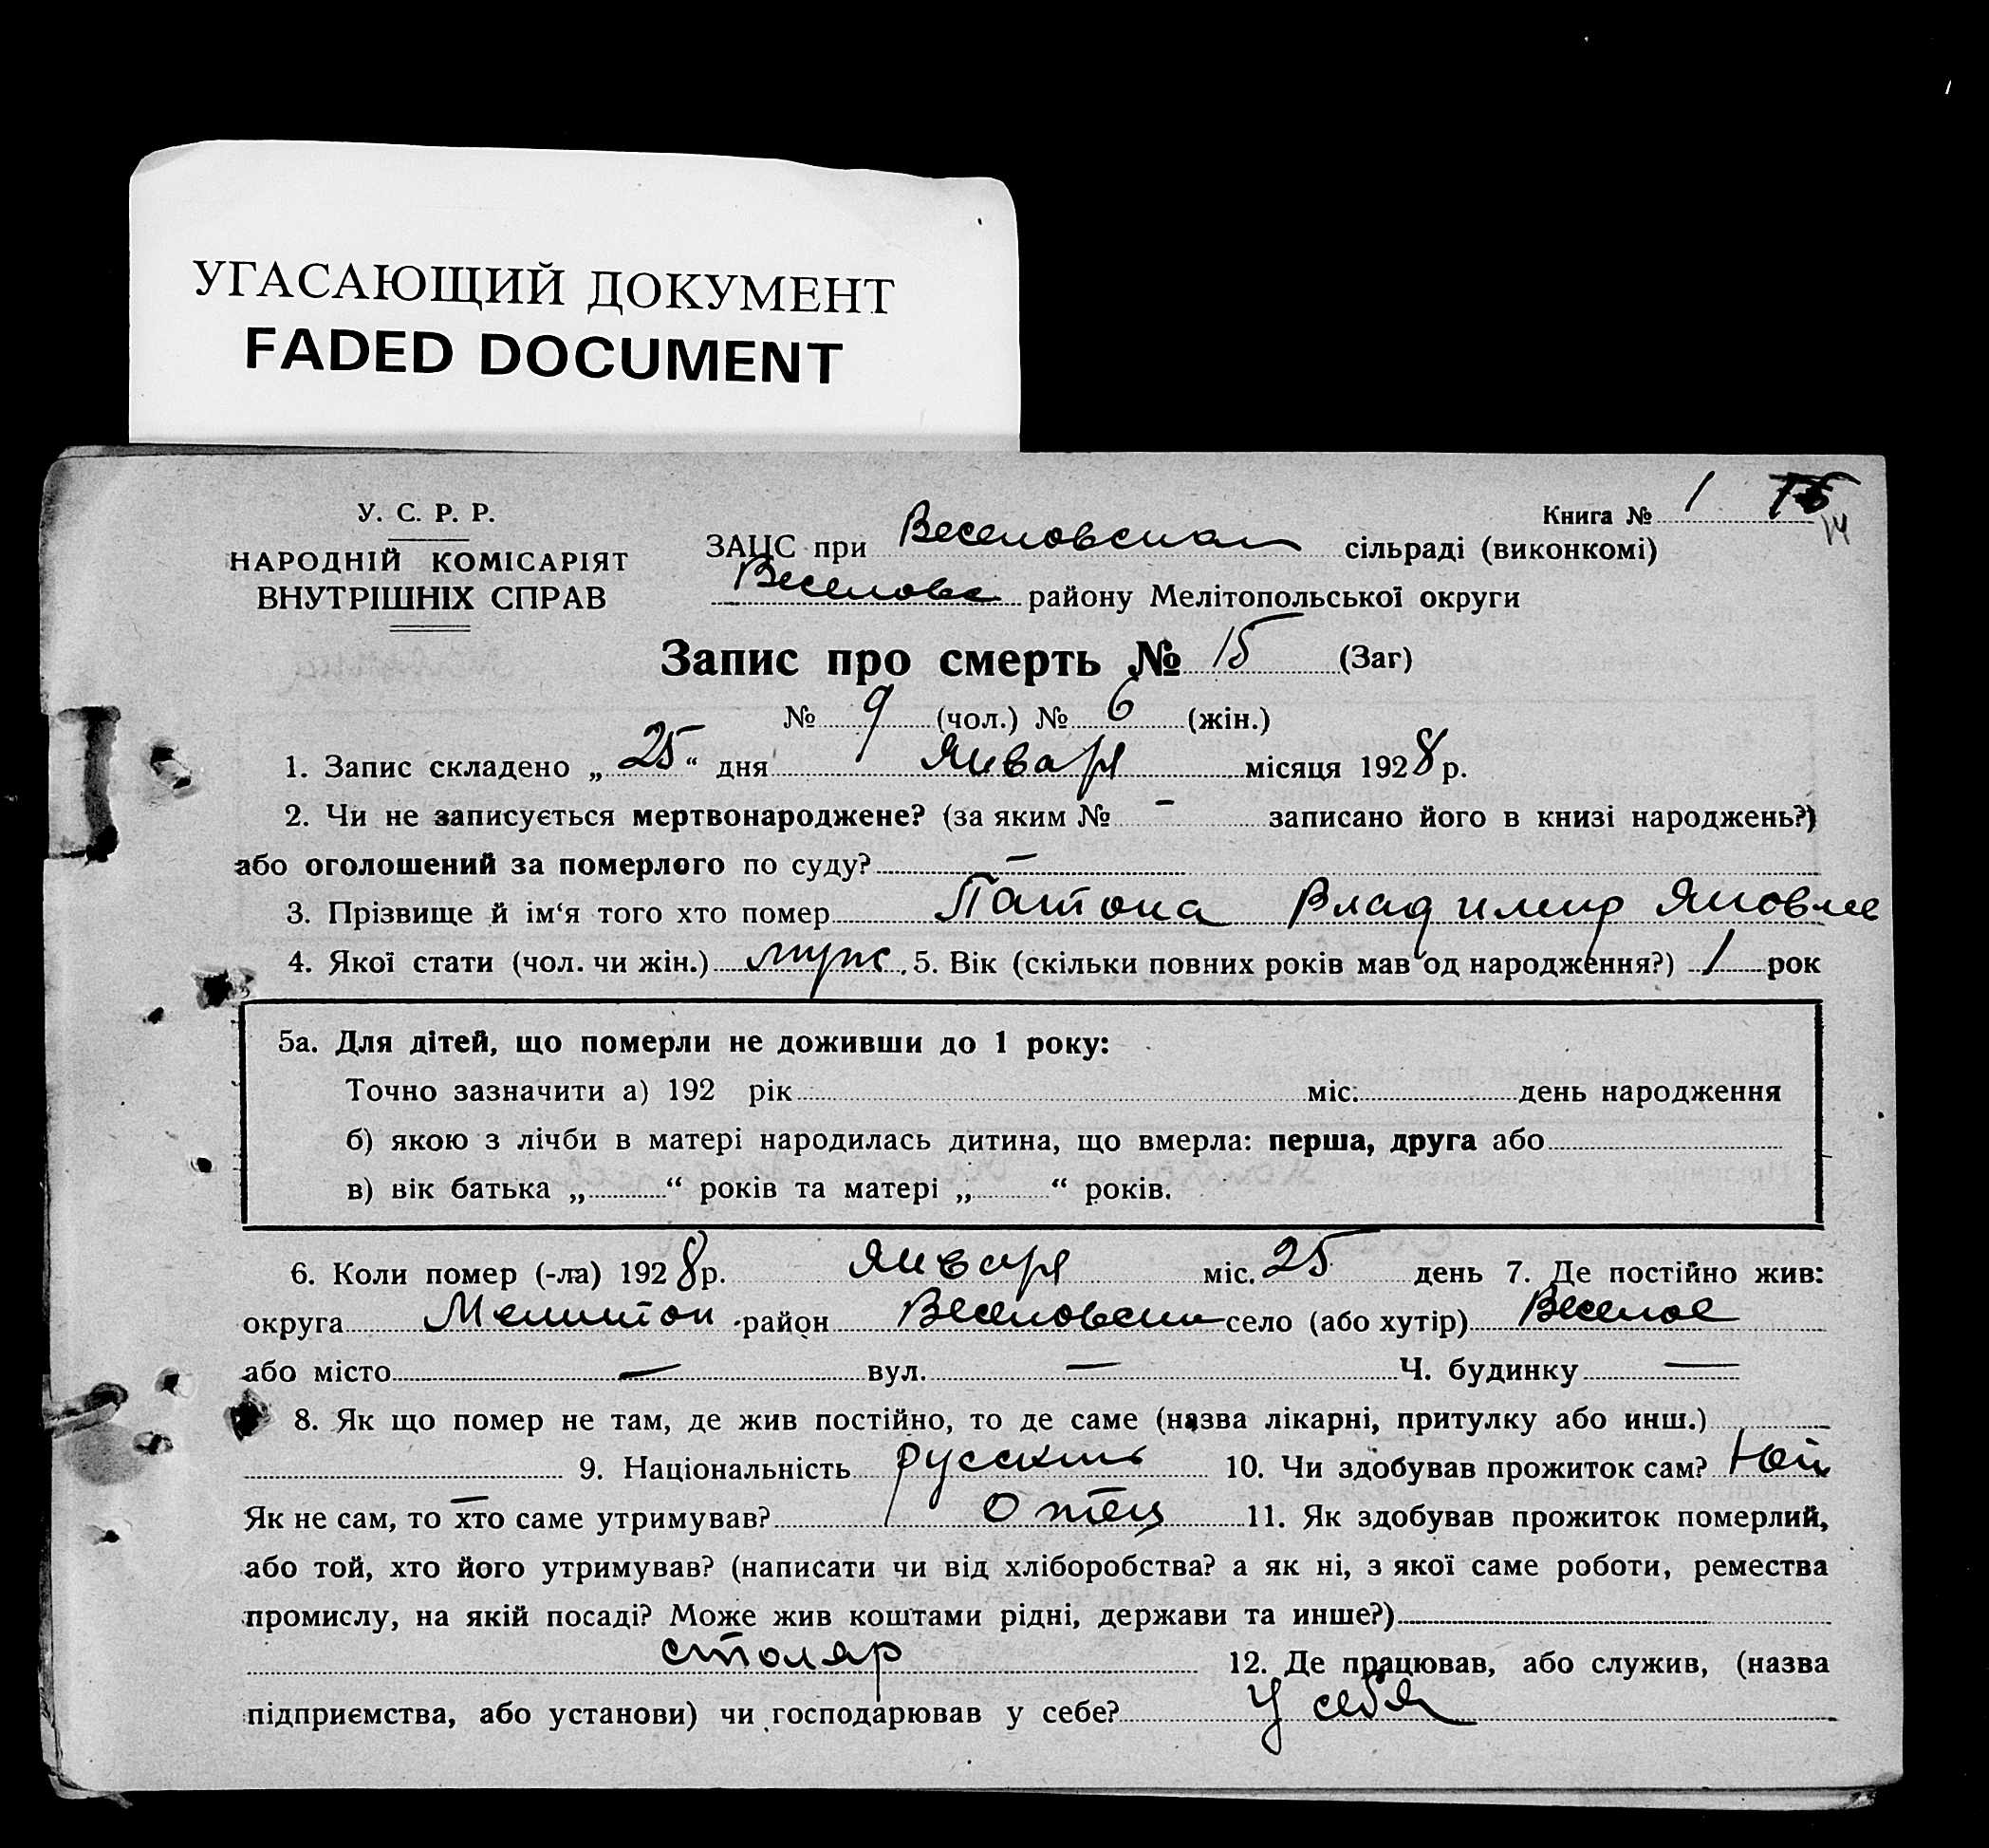 УГАСАЮЩИЙ ДОКУМЕНТ
FADED DOCUMENT
У. С. Р. Р.
НАРОДНІЙ КОМІСАРІЯТ
ВНУТРІШНІХ СПРАВ
Книга № 1
14
ЗАЦС при Веселовском сільраді (виконкомі)
Веселовс району Мелітопольської округи
Запис про смерть № 15 (Заг)
№ 9 (чол.) № 6 (жін.)
1. Запис складено „ 25 “ дня Января місяця 1928 р.
2. Чи не записується мертвонароджене? (за яким № - записано його в книзі народжень?)
або оголошений за померлого по суду? —
3. Прізвище й ім‘я того хто помер Владимир Яковле
4. Якої стати (чол. чи жін.) муж. 5. Вік (скільки повних років мав од народження?) 1 рок
5а. Для дітей, що померли не доживши до 1 року:
Точно зазначити а) 192 рік міс. день народження
б) якою з лічби в матері народилась дитина, що вмерла: перша, друга або
в) вік батька „ “ років та матері „ “ років.
6. Коли помер (-ла) 1928 р. Января міс. 25 день 7. Де постійно жив:
округа Мелитоп район Веселовски село (або хутір) Веселое
або місто — вул. — Ч. будинку —
8. Як що помер не там, де жив постійно, то де саме (назва лікарні, притулку або инш.)
9. Національність русский 10. Чи здобував прожиток сам?
Як не сам, то хто саме утримував? Отец 11. Як здобував прожиток померлий,
або той, хто його утримував? (написати чи від хліборобства? а як ні, з якої саме роботи, ремества
промислу, на якій посаді? Може жив коштами рідні, держави та инше?)
столяр 12. Де працював, або служив, (назва
підприємства, або установи) чи господарював у себе? У себя